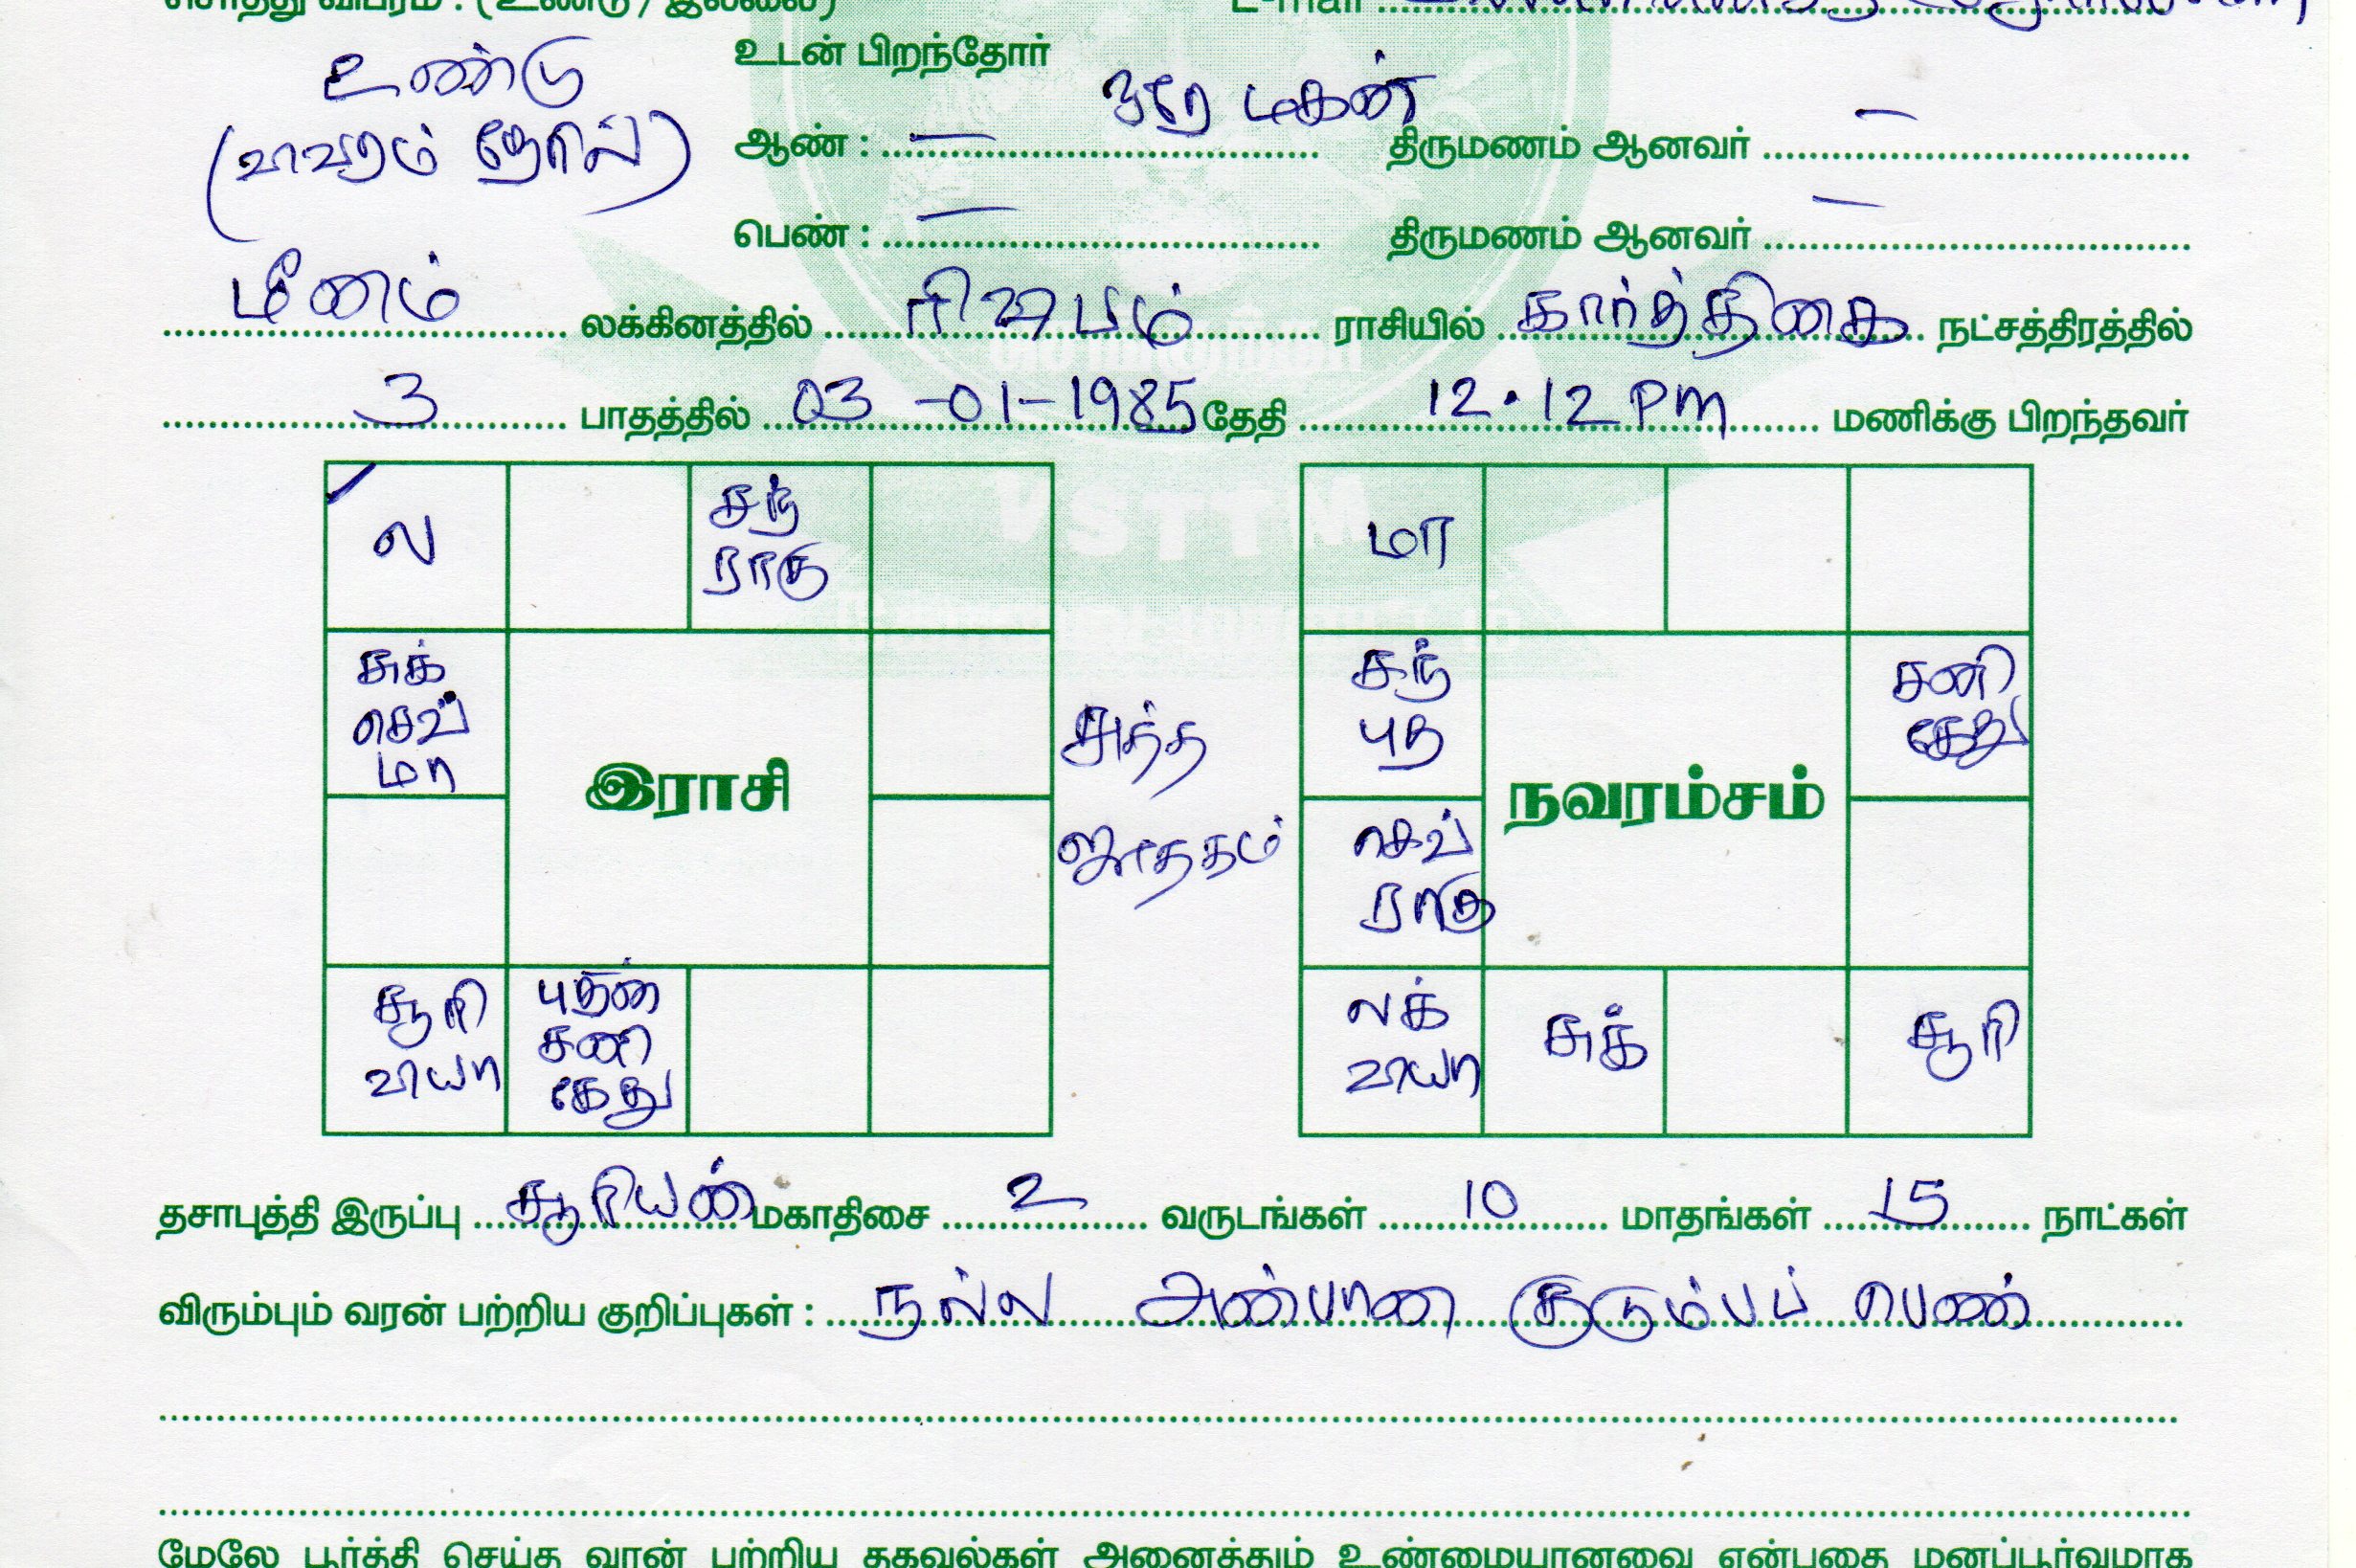 சொத்து விபரம் : (உண்டு / இல்லை) E-mail
உடன் பிறந்தோர்
உண்டு
ஒரே மகன்
(விவரம் நேரில்) ஆண் : — திருமணம் ஆனவர் —
பெண் : — திருமணம் ஆனவர் —
மீனம் லக்கினத்தில் ரிஷபம் ராசியில் கார்த்திகை நட்சத்திரத்தில்
3 பாதத்தில் 03-01-1985 தேதி 12.12 PM மணிக்கு பிறந்தவர்
ல சந் மா
ராகு
சுக் சந் சனி
செவ் புத கேது
மா
இராசி சுத்த நவரம்சம்
ஜாதகம் செவ்
ராகு
சூரி புதன் லக் சுக் சூரி
வியா சனி வியா
கேது
தசாபுத்தி இருப்பு சூரியன் மகாதிசை 2 வருடங்கள் 10 மாதங்கள் 15 நாட்கள்
விரும்பும் வரன் பற்றிய குறிப்புகள் : நல்ல அன்பான குடும்பப் பெண்
மேலே பூர்த்தி செய்த வரன் பற்றிய தகவல்கள் அனைத்தும் உண்மையானவை என்பதை மனப்பூர்வமாக